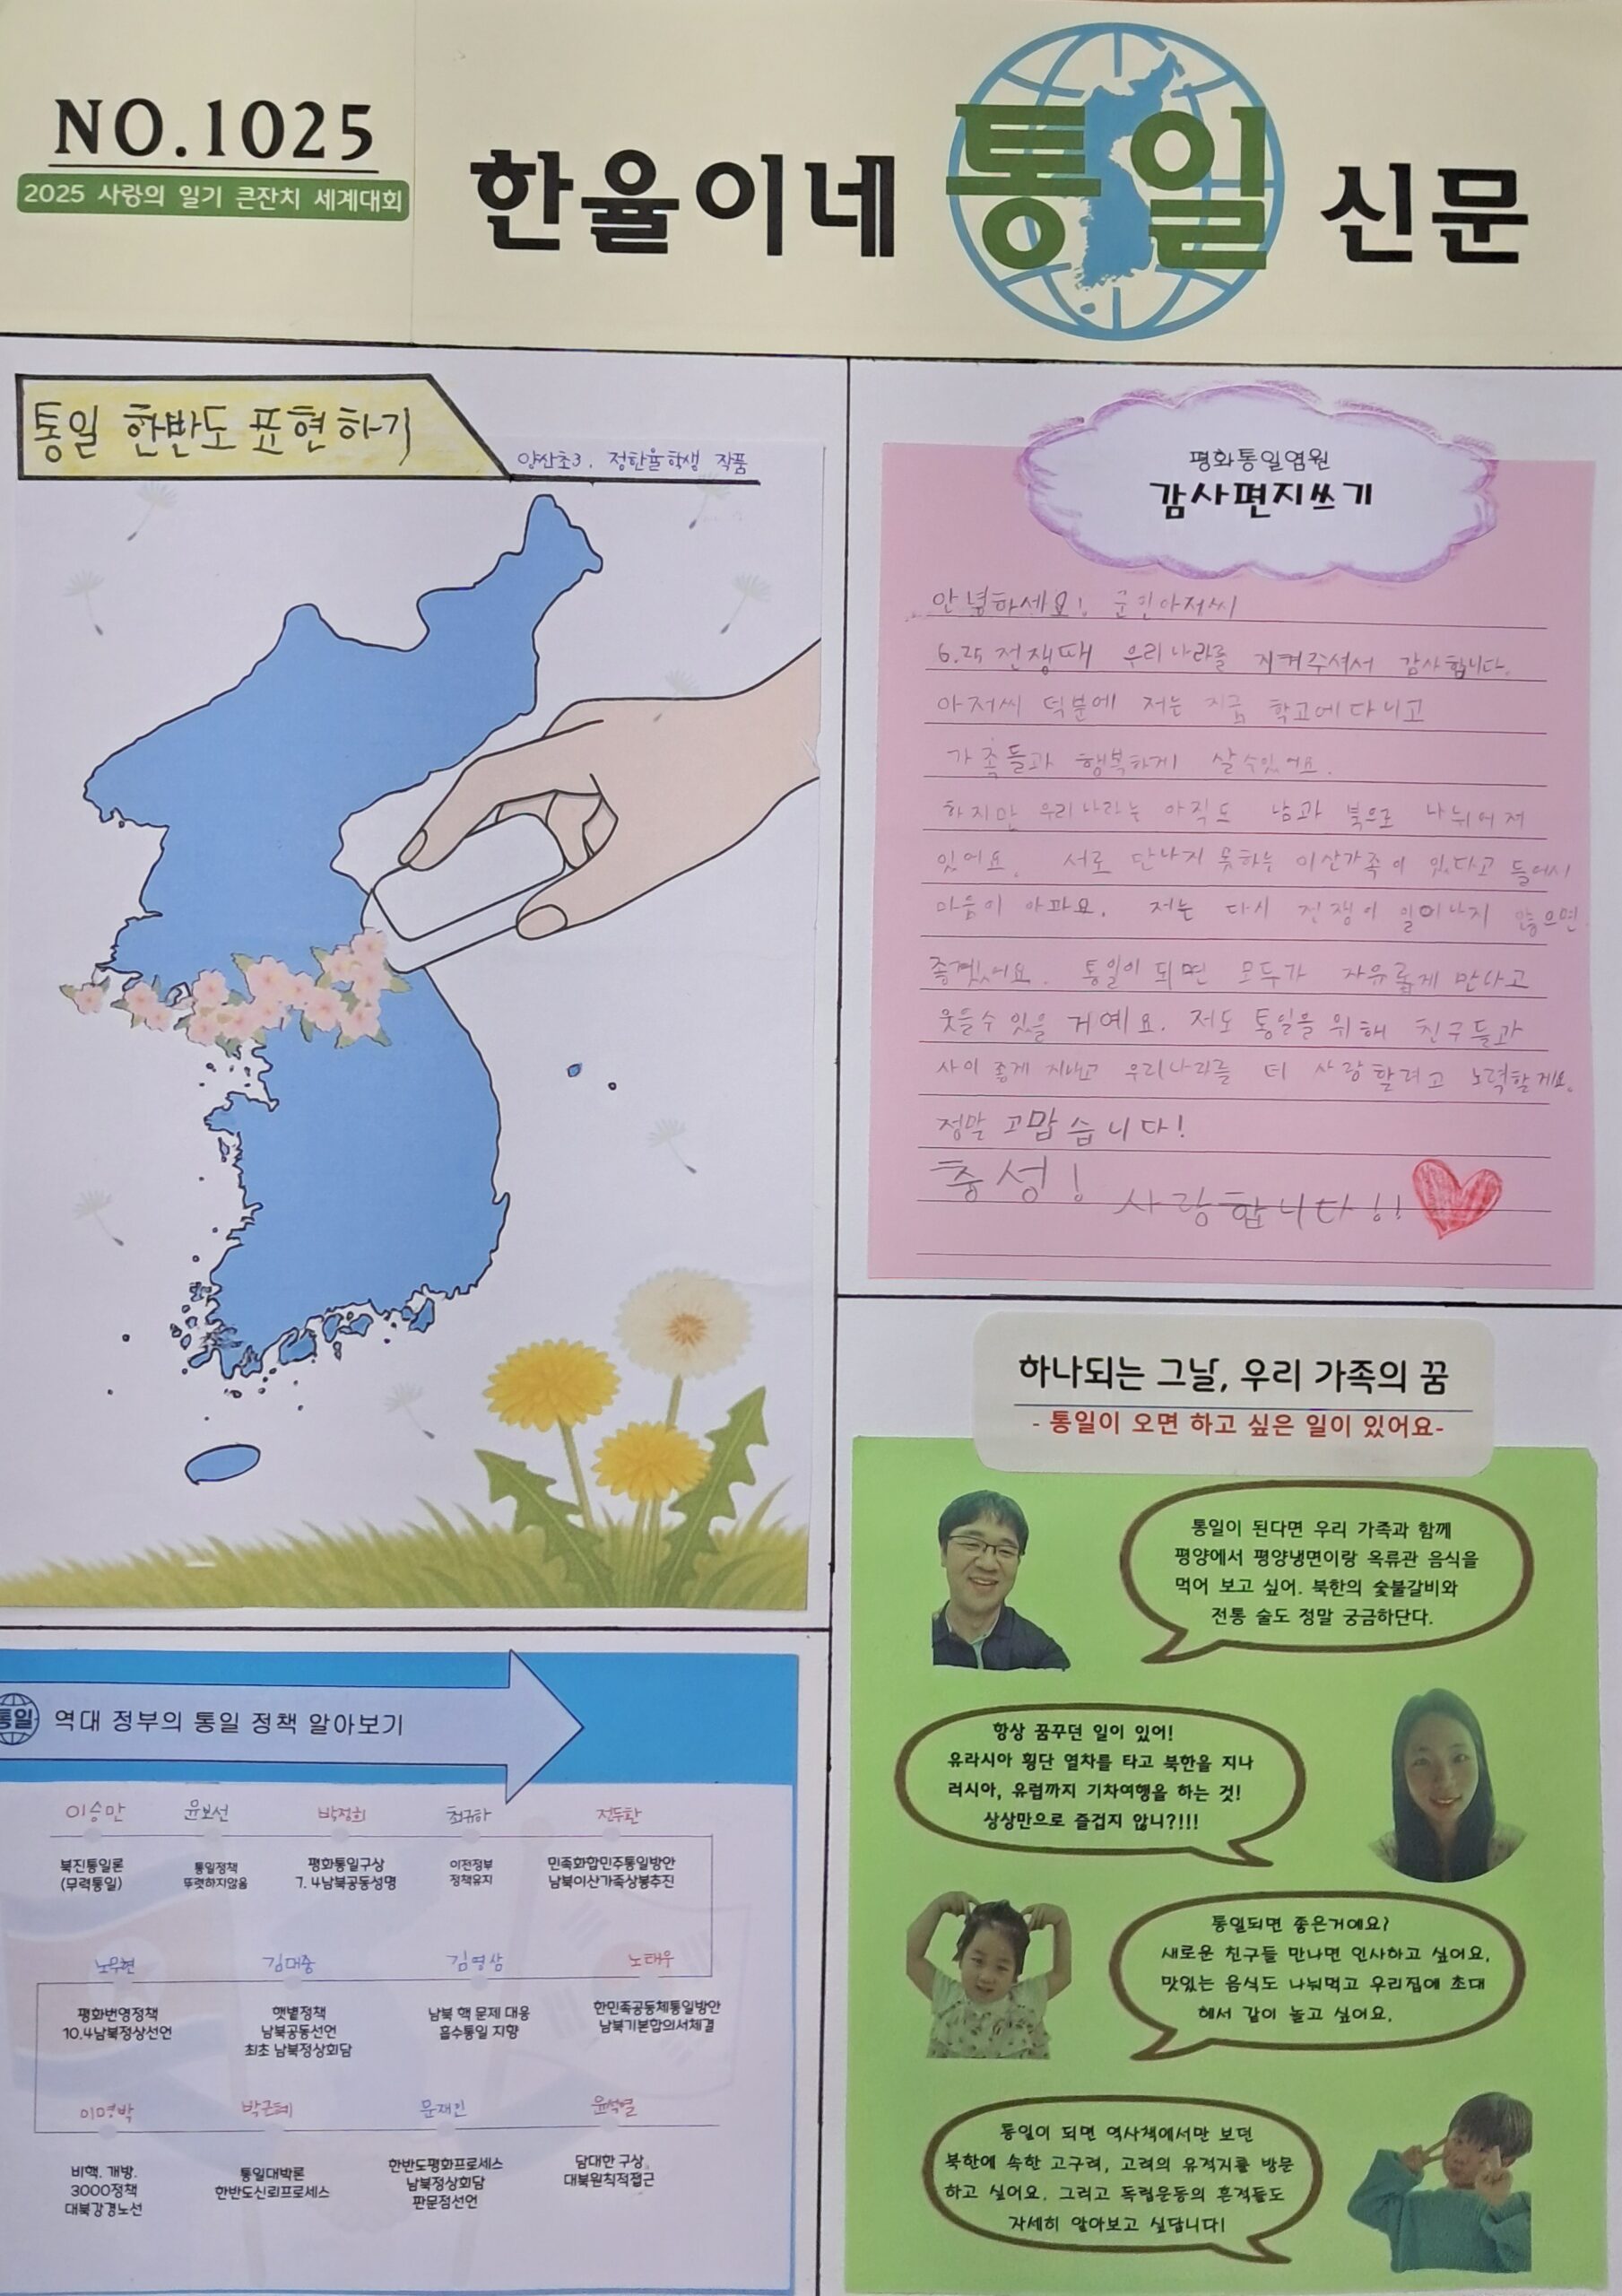 NO.1025
2025 사랑의 일기 큰잔치 세계대회
한율이네 통일 신문
통일 한반도 표현하기
양산초3. 정한율학생 작품
평화통일염원
감사편지쓰기
안녕하세요! 군인아저씨
6.25 전쟁때 우리나라를 지켜주셔서 감사합니다.
아저씨 덕분에 저는 지금 학교에 다니고
가족들과 행복하게 살 수있어요.
하지만 우리나라는 아직도 남과 북으로 나뉘어져
있어요. 서로 만나지 못하는 이산가족이 있다고 들어서
마음이 아파요. 저는 다시 전쟁이 일어나지 않으면
좋겠어요. 통일이 되면 모두가 자유롭게 만나고
웃을수 있을 거예요. 저도 통일을 위해 친구들과
사이 좋게 지내고 우리나라를 더 사랑할려고 노력할게요.
정말 고맙습니다!
충성! 사랑합니다!!
하나되는 그날, 우리 가족의 꿈
- 통일이 오면 하고 싶은 일이 있어요-
통일이 된다면 우리 가족과 함께
평양에서 평양냉면이랑 옥류관 음식을
먹어 보고 싶어. 북한의 숯불갈비와
전통 술도 정말 궁금하단다.
항상 꿈꾸던 일이 있어!
유라시아 횡단 열차를 타고 북한을 지나
러시아, 유럽까지 기차여행을 하는 것!
상상만으로 즐겁지 않니?!!!
통일되면 좋은거예요?
새로운 친구들 만나면 인사하고 싶어요.
맛있는 음식도 나눠먹고 우리집에 초대
해서 같이 놀고 싶어요.
통일이 되면 역사책에서만 보던
북한에 속한 고구려, 고려의 유적지를 방문
하고 싶어요. 그리고 독립운동의 흔적들도
자세히 알아보고 싶답니다!
통일 역대 정부의 통일 정책 알아보기
이승만 윤보선 박정희 최규하 전두환
북진통일론 통일정책 평화통일구상 이전정부 민족화합민주통일방안
(무력통일) 뚜렷하지않음 7. 4남북공동성명 정책유지 남북이산가족상봉추진
노무현 김대중 김영삼 노태우
평화번영정책 햇볕정책 남북 핵 문제 대응 한민족공동체통일방안
10.4남북정상선언 남북공동선언 흡수통일 지향 남북기본합의서체결
최초 남북정상회담
이명박 박근혜 문재인 윤석열
비핵. 개방. 통일대박론 한반도평화프로세스 담대한 구상
3000정책 한반도신뢰프로세스 남북정상회담 대북원칙적접근
대북강경노선 판문점선언